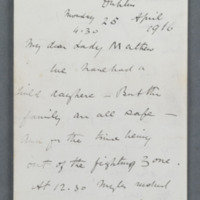 Dublin
Monday 25 April
4.30 1916
My dear Lady Mathew
We have had a
hell day here - But the
family are all safe -
And for the time being
out of the fighting zone.
At 12.30 Megles rushed